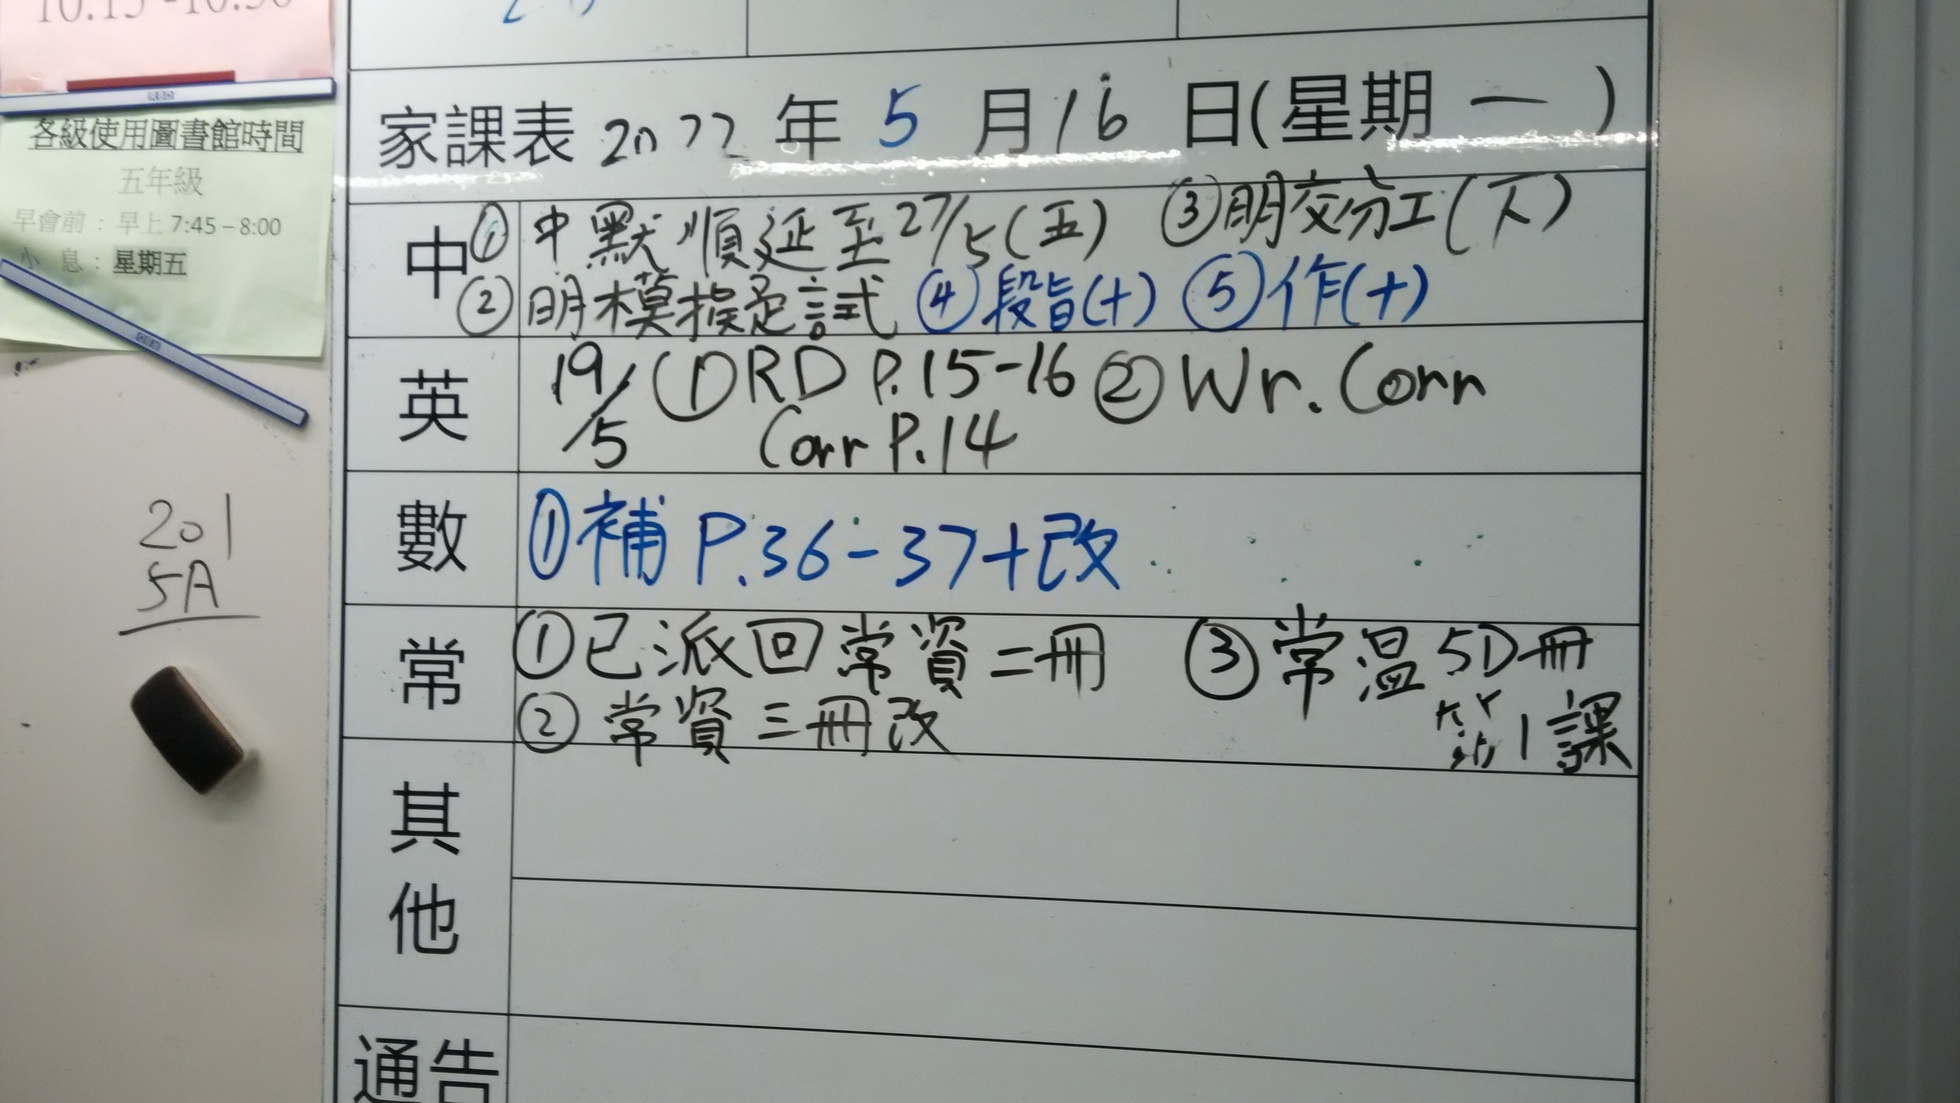 10:15 -10:30
各級使用圖書館時間
五年級
早會前：早上 7:45 – 8:00
小 息：星期五
201
5A
家課表 2022 年 5 月 16 日(星期 一 )
中 ① 中默順延至27/5(五) ③明交分工(下)
② 明模擬定試 ④段旨(+) ⑤作(+)
英 19/5 ①RD P.15-16 ② Wr. Corr
Corr P.14
數 ①補 P.36-37+改
常 ①已派回常資二冊 ③常溫5D冊
② 常資三冊改 第1課
其他
通告